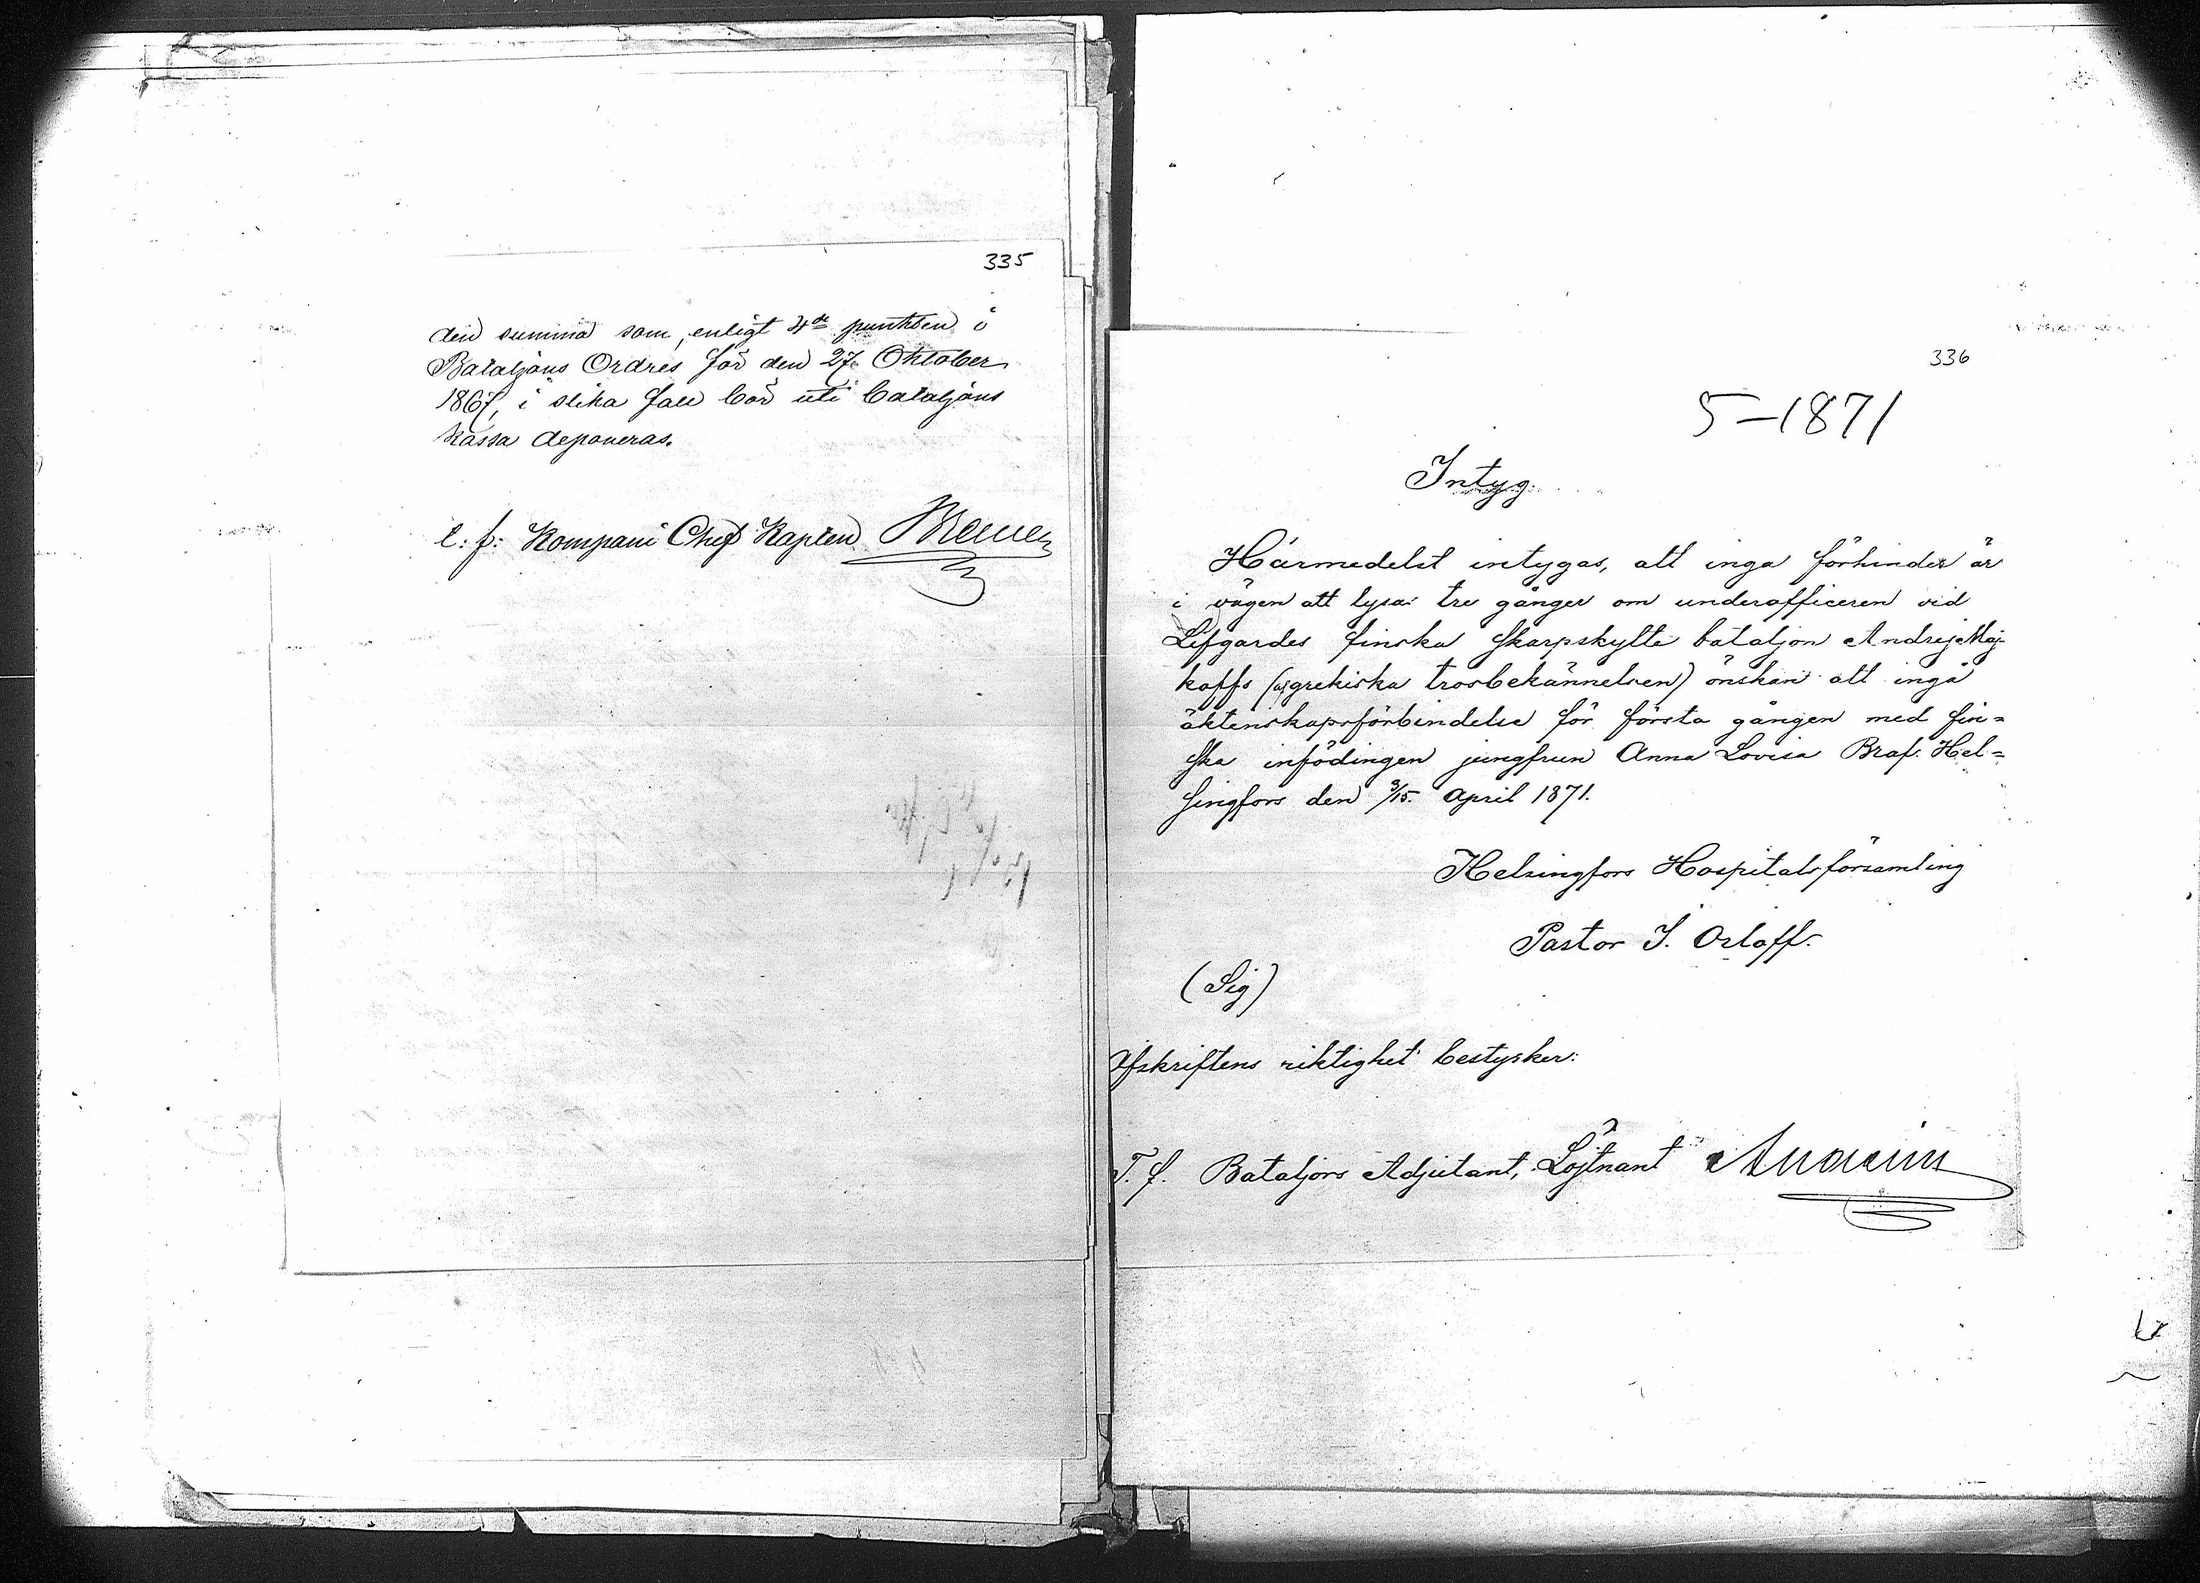 335
den summa som, enligt 4de punkten i
Bataljons Ordres för den 27 Oktober
1867, i slika fall bör uti bataljons
kassa deponeras.
t. f. Kompani Chef Kapten
336
5-1871
Intyg.
Härmedelst intygas, att inga förhinder är
i vägen att lysa tre gånger om underofficeren vid
Lifgardes finska skarpskytte bataljon Andrej Maj-
koffs (af grekiska trosbekännelsen) önskan att ingå
äktenskapsförbindelse för första gången med fin=
ska infödingen jungfrun Anna Lovisa Braf. Hel=
singfors den 3/15. April 1871.
Helsingfors Hospitalsförsamling
Pastor I. Orloff.
(Sig)
Afskriftens riktighet bestyrker:
T. f. Bataljons Adjutant, Löjtnant